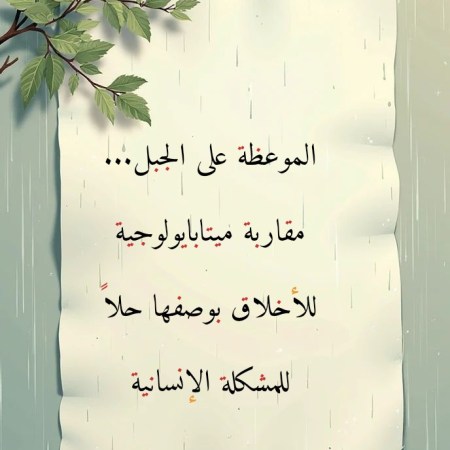 الموعظة على الجبل...
مقاربة ميتابايولوجية
للأخلاق بوصفها حلاً
للمشكلة الإنسانية